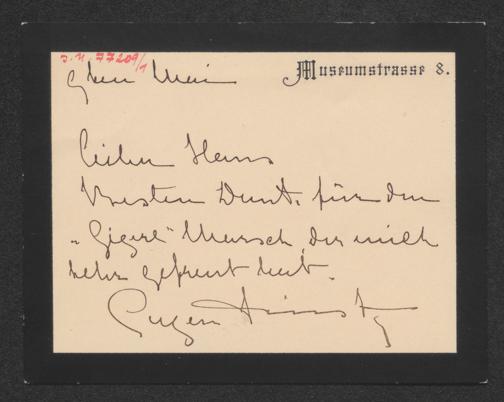 J.N. 77209/1
Museumstrasse 8.
9ten Mai
Lieber Hans
Besten Dank, für den
„Gigerl" Marsch, der mich
sehr gefreut hat.
Eugen